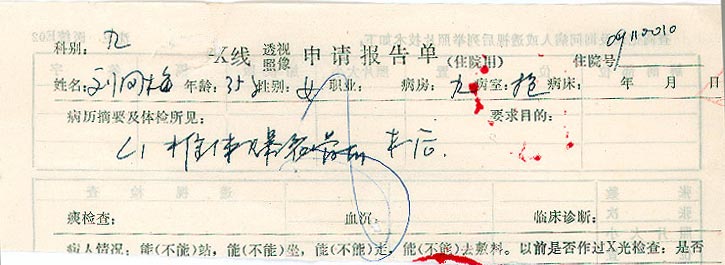 科别：九
X线 透视 照像 申请报告单 （住院用） 住院号 09110010
姓名：刘冈梅 年龄：35岁 性别：女 职业： 病房：九 病室：抢 病床： 年 月 日
病历摘要及体检所见： 要求目的：
L1 椎体爆裂 术后
痰检查： 血沉： 临床诊断：
病人情况：能（不能）站，能（不能）坐，能（不能）走，能（不能）去敷料。以前是否作过X光检查：是否